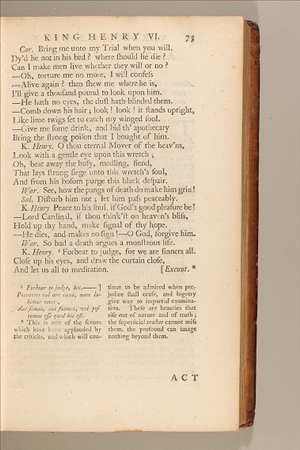 KING HENRY VI. 73
Car. Bring me unto my Trial when you will.
Dy'd he not in his bed? where should he die?
Can I make men live whether they will or no?
—Oh, torture me no more, I will confess
—Alive again? then shew me where he is,
I'll give a thousand pound to look upon him.
—He hath no eyes, the dust hath blinded them.
—Comb down his hair; look! look! it stands upright,
Like lime twigs set to catch my winged soul.
—Give me some drink, and bid th' apothecary
Bring the strong poison that I bought of him.
K. Henry. O thou eternal Mover of the heav'ns,
Look with a gentle eye upon this wretch;
Oh, beat away the busy, medling, fiend,
That lays strong siege unto this wretch's soul,
And from his bosom purge this black despair.
War. See, how the pangs of death do make him grin!
Sal. Disturb him not; let him pass peaceably.
K. Henry Peace to his soul, if God's good pleasure be!
—Lord Cardinal, if thou think'st on heaven's bliss,
Hold up thy hand, make signal of thy hope.
—He dies, and makes no sign!—O God, forgive him.
War. So bad a death argues a monstrous life.
K. Henry. ¹ Forbear to judge, for we are sinners all.
Close up his eyes, and draw the curtain close,
And let us all to meditation. [Exeunt. *
¹ Forbear to judge, &c.——]
Peccantes culpare cave, nam labimur omnes,
Aut sumus, aut fuimus, vel possumus esse quod hic est.
* This is one of the scenes
which have been applauded by
the criticks, and which will continue
to be admired when prejudice
shall cease, and bigotry
give way to impartial examination.
These are beauties that
rise out of nature and of truth;
the superficial reader cannot miss
them, the profound can image
nothing beyond them.
ACT